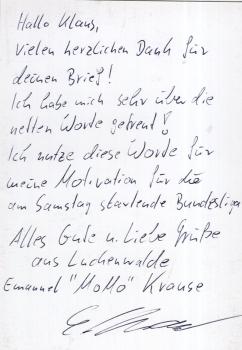 Hallo Klaus,
vielen herzlichen Dank für
deinen Brief!
Ich habe mich sehr über die
netten Worte gefreut!
Ich nutze diese Worte für
meine Motivation für die
am Samstag startende Bundesliga
Alles Gute u. liebe Grüße
aus Luckenwalde
Emanuel "MoMo" Krause